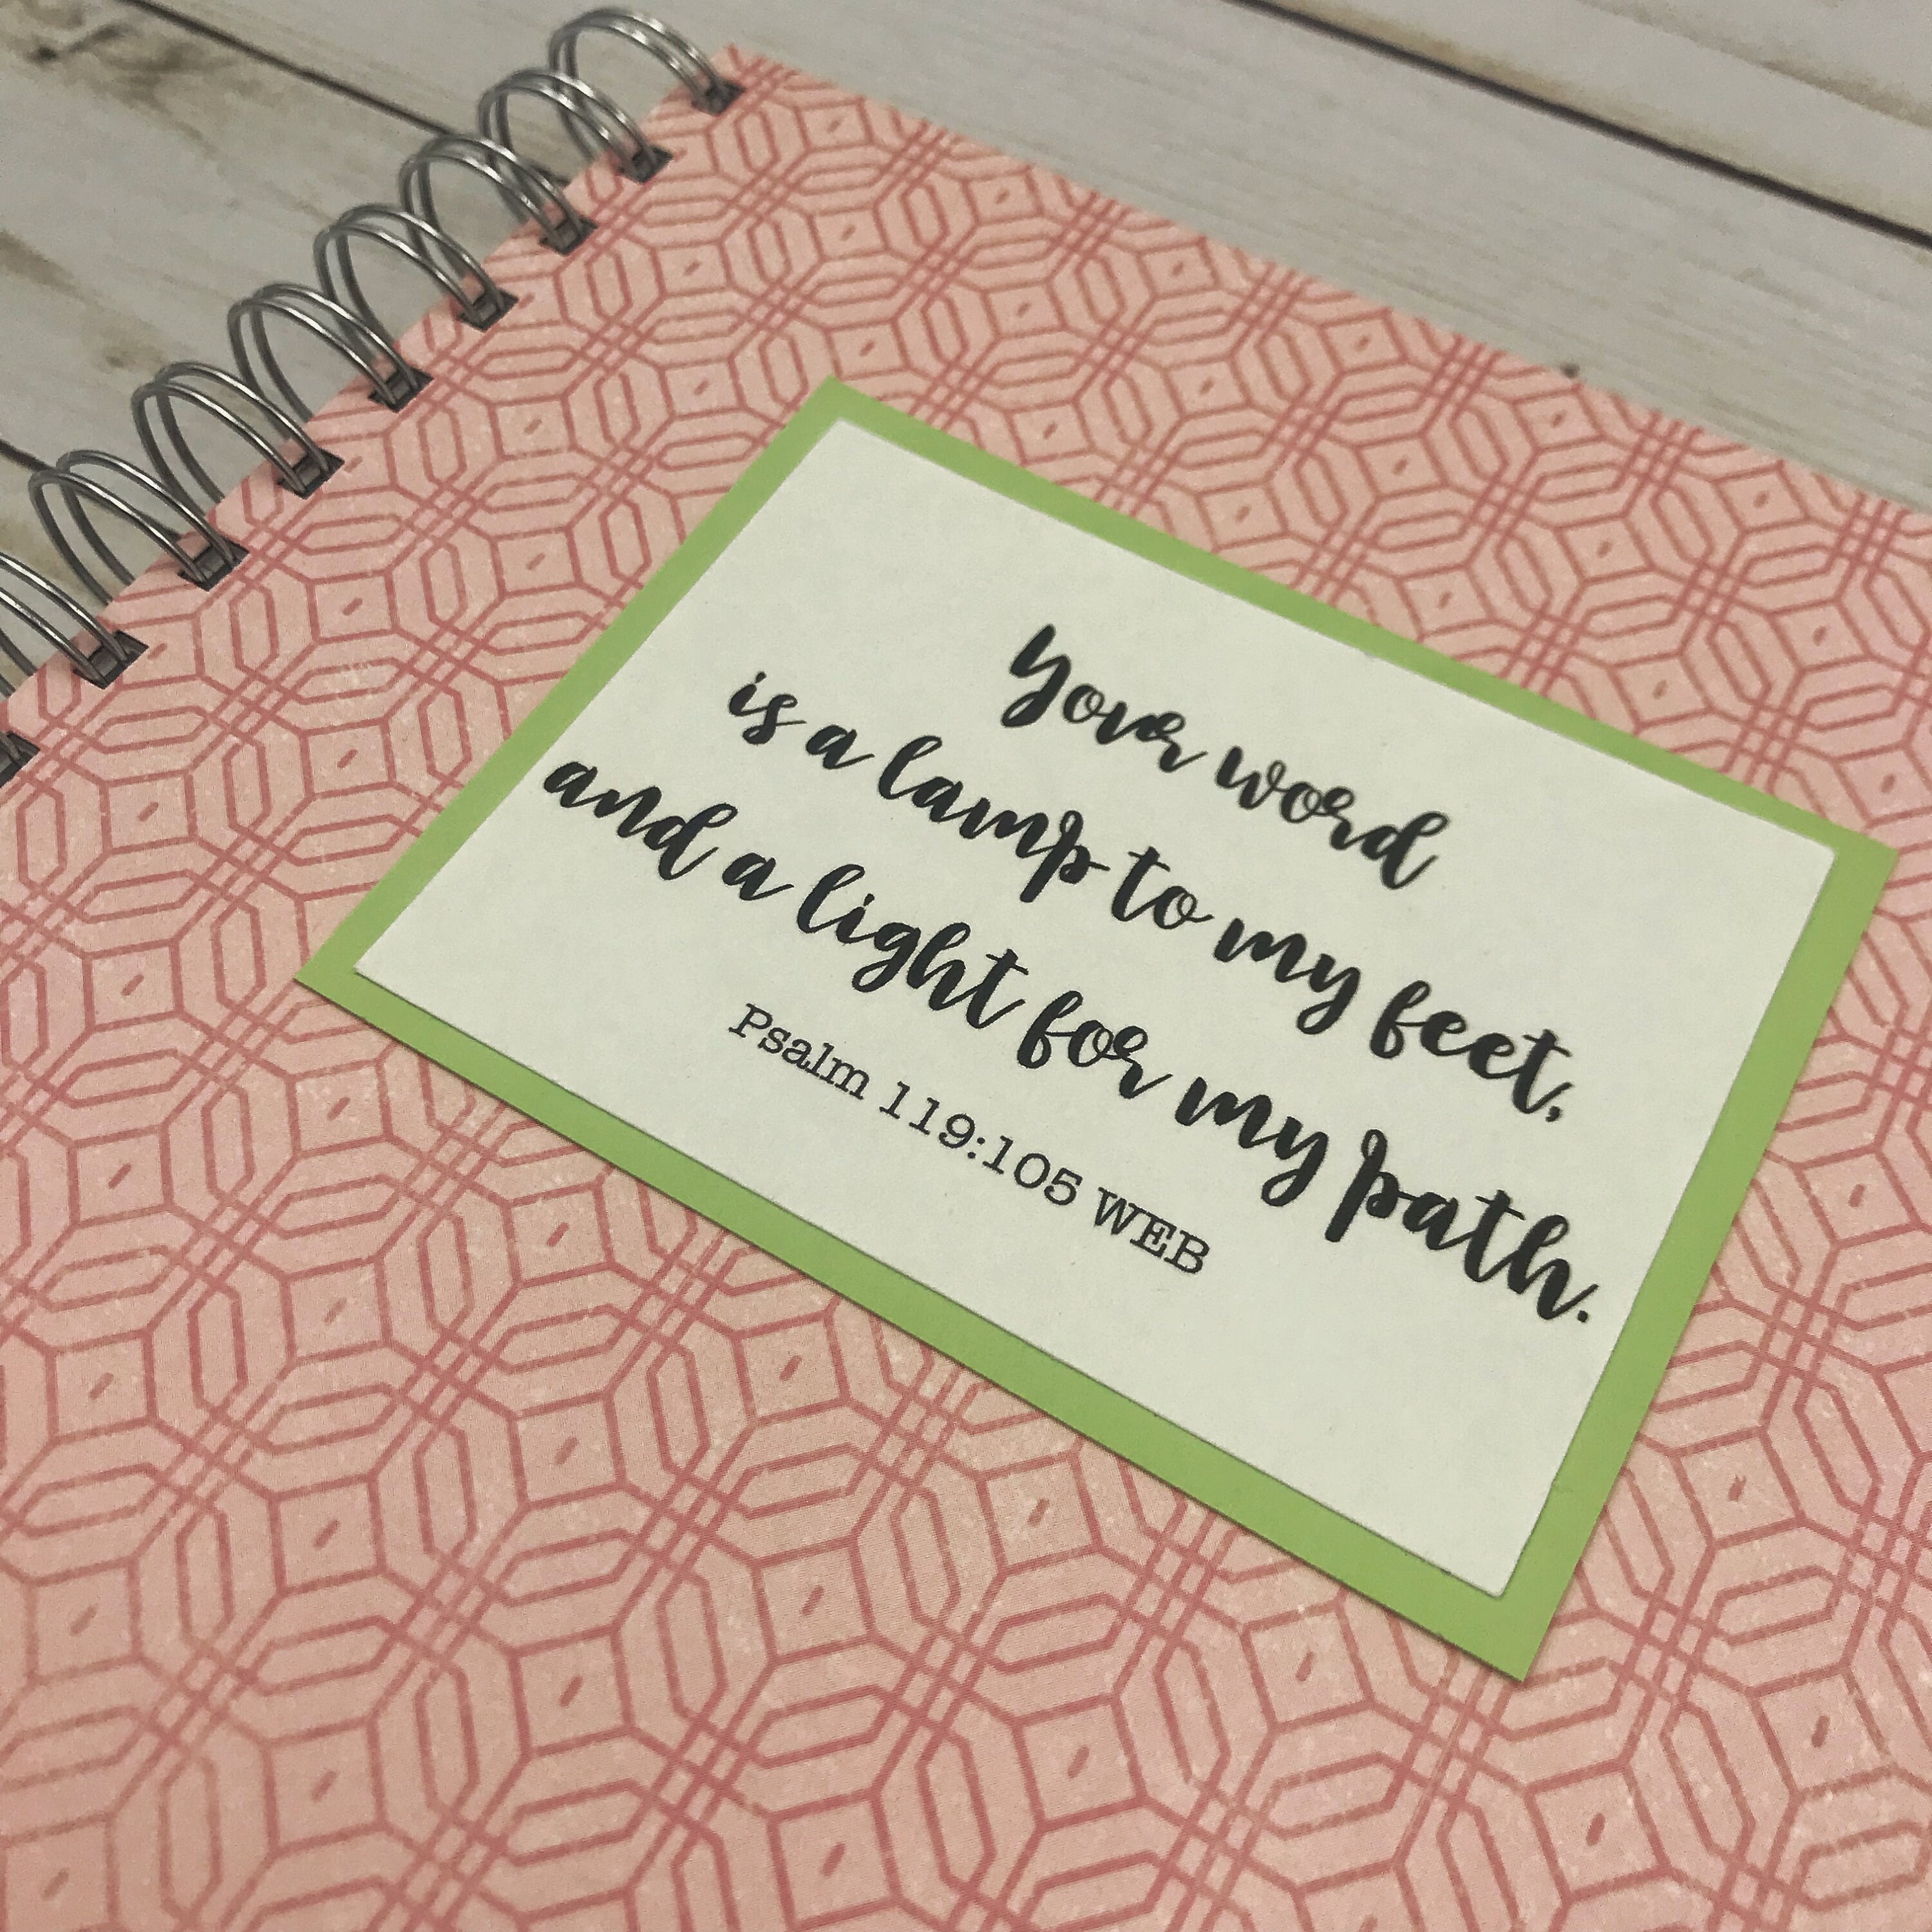 Your word
is a lamp to my feet,
and a light for my path.
Psalm 119:105 WEB